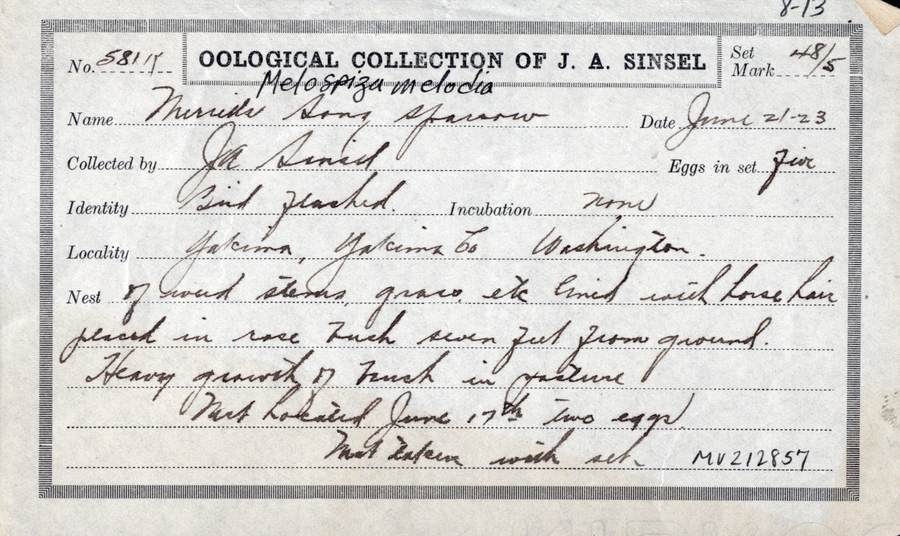 8-13
No. 581.1 OOLOGICAL COLLECTION OF J. A. SINSEL Set Mark 48/5
Melospiza melodia
Name Merrill's Song Sparrow Date June 21-23
Collected by JA Sinsel Eggs in set Five
Identity Bird flushed. Incubation none
Locality Yakima, Yakima Co Washington.
Nest of weed stems, grass, etc lined with horse hair
placed in rose bush seven feet from ground.
Heavy growth of brush in pasture
Nest located June 17th two eggs
Nest taken with set. MV212857